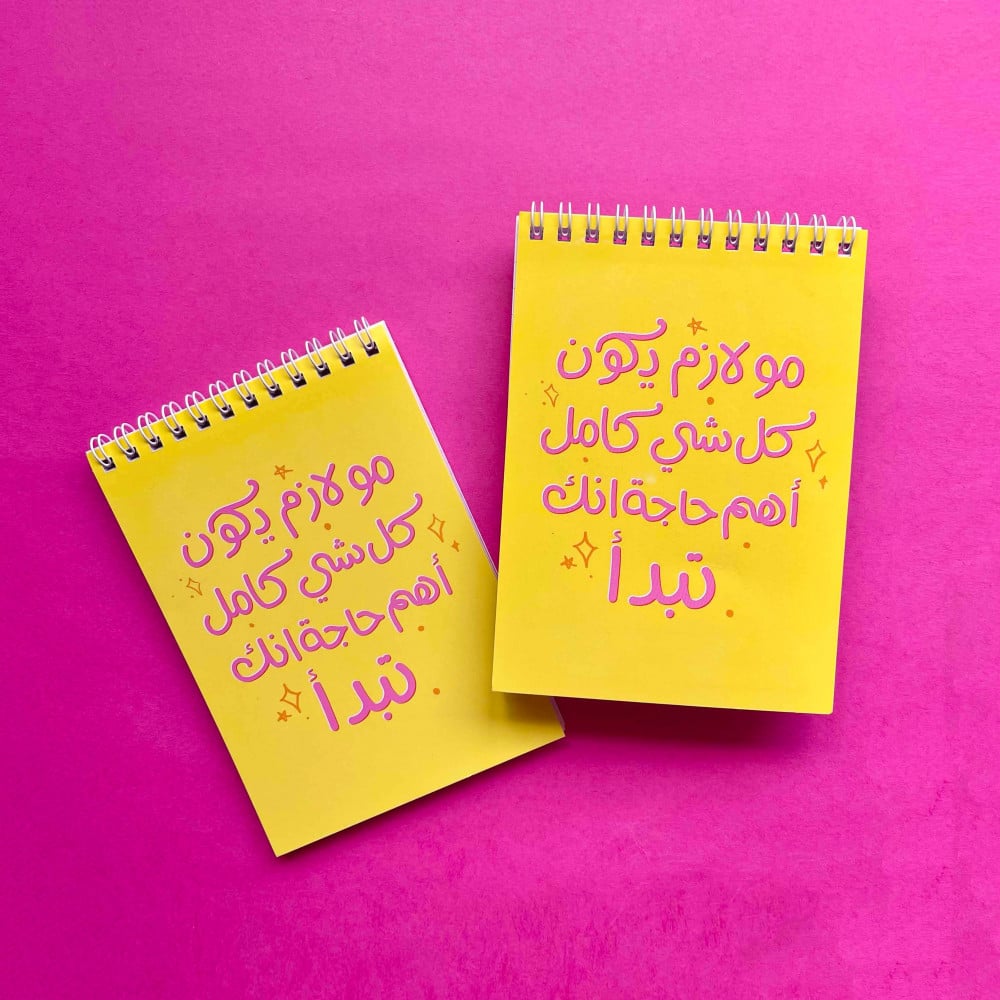 مو لازم يكون
كل شي كامل
أهم حاجة انك
تبدأ
مو لازم يكون
كل شي كامل
أهم حاجة انك
تبدأ